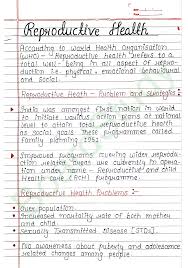 Reproductive Health
According to World Health Organisation
(WHO) - Reproductive Health refers to a
total well-being in all aspect of reprod-
uction i.e. physical, emotional, behavioural
and Social.
Reproductive Health - Problem and Strategies:
India was amongst first nation in world
to initiate various action plans at national
level to attain total reproductive health
as social goals these programmes called
family planning 1951.
Improved programs covering wider reproduction
related areas are currently in opera-
tion under name - Reproductive and child
Health Care (RCH) programme.
Reproductive Health Problems:
Over population
Increased mortality rate of both mother
and child.
Sexually Transmitted Disease [STDs].
No awareness about puberty and adolescence
related changes among people.